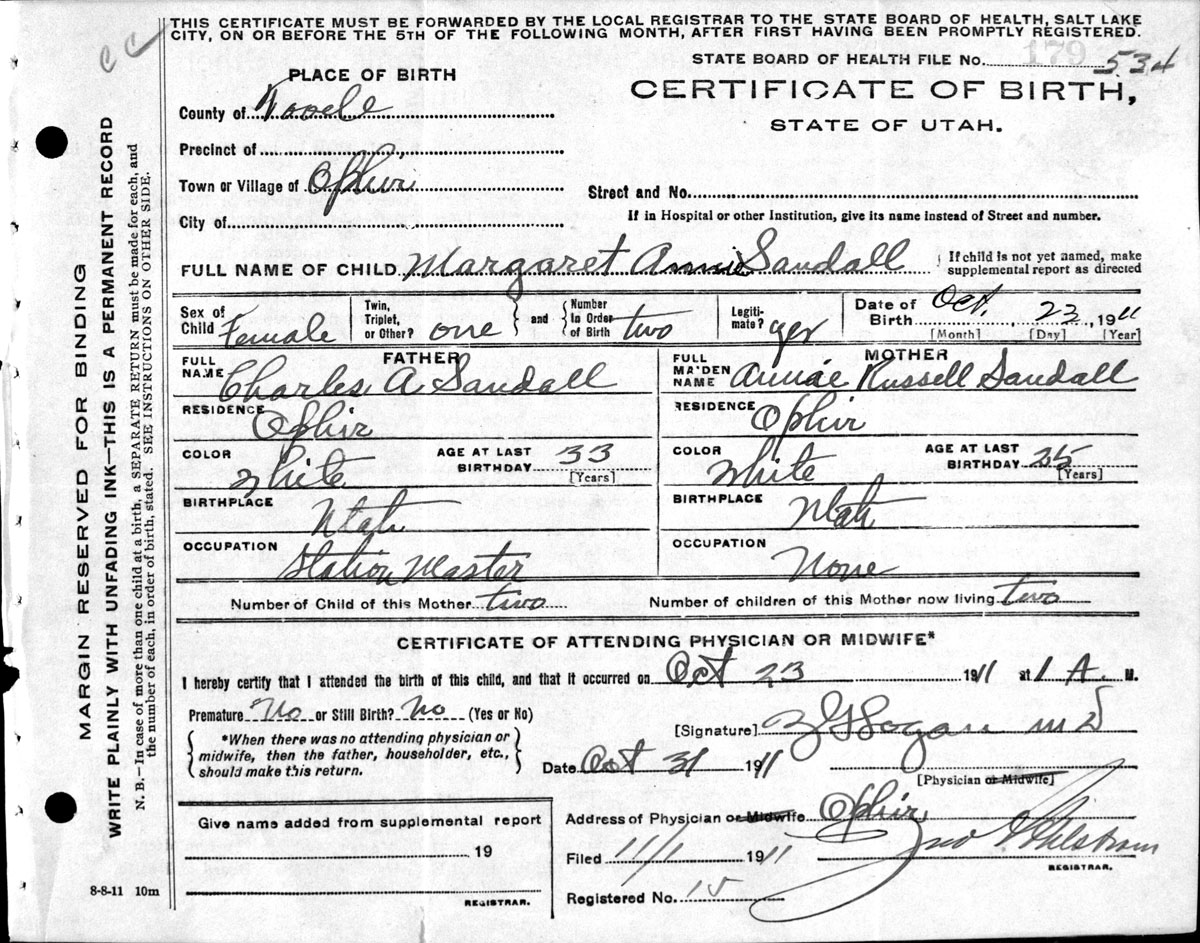 THIS CERTIFICATE MUST BE FORWARDED BY THE LOCAL REGISTRAR TO THE STATE BOARD OF HEALTH, SALT LAKE
CITY, ON OR BEFORE THE 5TH OF THE FOLLOWING MONTH, AFTER FIRST HAVING BEEN PROMPTLY REGISTERED.
CC
STATE BOARD OF HEALTH FILE No. 179 534
PLACE OF BIRTH
CERTIFICATE OF BIRTH,
County of Tooele
STATE OF UTAH.
Precinct of
Town or Village of Ophir
Street and No.
City of
If in Hospital or other Institution, give its name instead of Street and number.
FULL NAME OF CHILD Margaret Annie Sandall
If child is not yet named, make
supplemental report as directed
Sex of Child Female
Twin, Triplet, or Other? one
and
Number in Order of Birth two
Legitimate? yes
Date of Birth Oct. 23, 1911
[Month] [Day] [Year]
FATHER
FULL NAME Charles A Sandall
RESIDENCE Ophir
COLOR White
AGE AT LAST BIRTHDAY 33
[Years]
BIRTHPLACE Utah
OCCUPATION Station Master
MOTHER
FULL MAIDEN NAME Annie Russell Sandall
RESIDENCE Ophir
COLOR White
AGE AT LAST BIRTHDAY 35
[Years]
BIRTHPLACE Utah
OCCUPATION None
Number of Child of this Mother two
Number of children of this Mother now living two
CERTIFICATE OF ATTENDING PHYSICIAN OR MIDWIFE*
I hereby certify that I attended the birth of this child, and that it occurred on Oct 23 1911 at 1 A. M.
Premature No or Still Birth? No (Yes or No)
*When there was no attending physician or
midwife, then the father, householder, etc.,
should make this return.
[Signature] M D
Date Oct 31 1911
[Physician or Midwife]
Address of Physician or Midwife Ophir
Filed 11/1 1911
REGISTRAR.
Registered No. 15
Give name added from supplemental report
19
REGISTRAR.
8-8-11 10m
MARGIN RESERVED FOR BINDING
WRITE PLAINLY WITH UNFADING INK—THIS IS A PERMANENT RECORD
N. B.—In case of more than one child at a birth, a SEPARATE RETURN must be made for each, and
the number of each, in order of birth, stated. SEE INSTRUCTIONS ON OTHER SIDE.